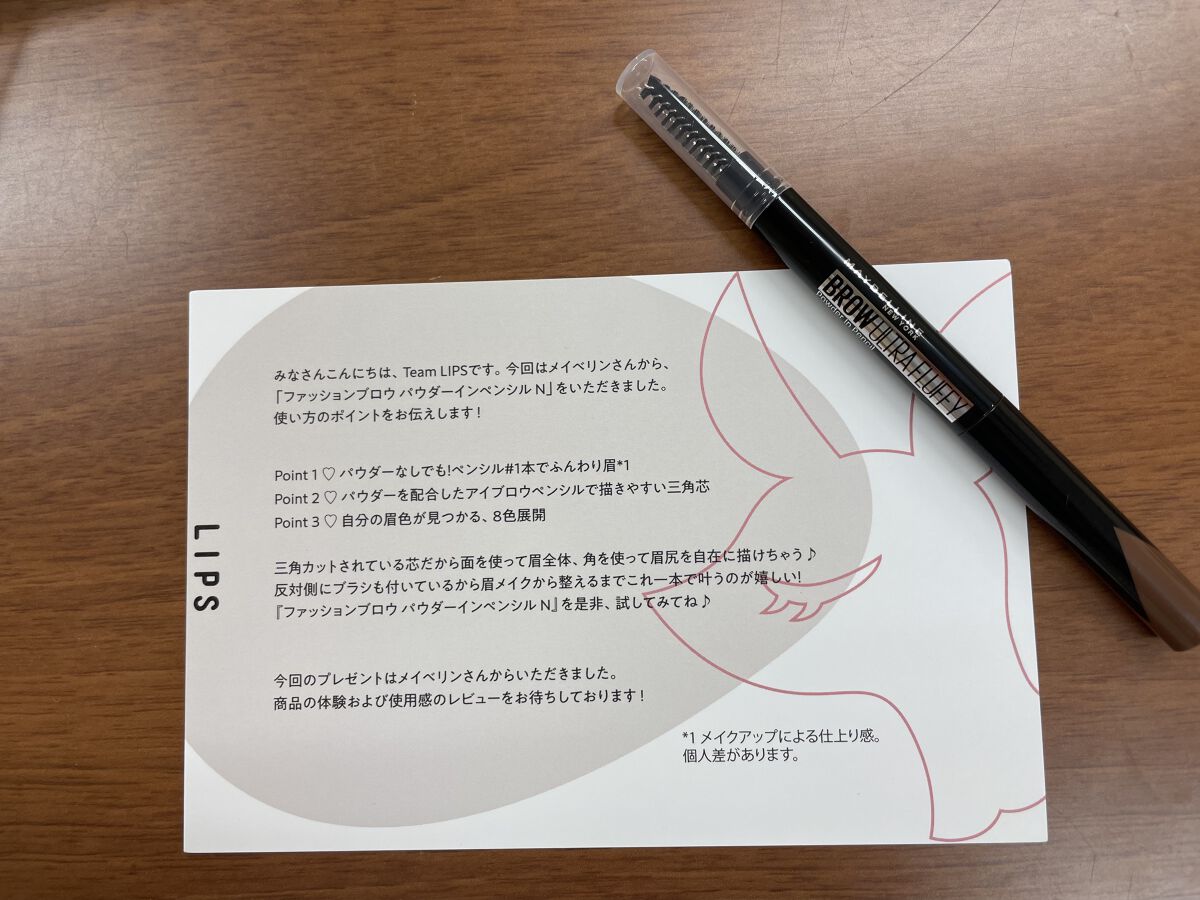 MAYBELLINE
NEW YORK
BROW ULTRA FLUFFY
Powder In Pencil
みなさんこんにちは、Team LIPSです。今回はメイベリンさんから、
「ファッションブロウ パウダーインペンシル N」をいただきました。
使い方のポイントをお伝えします!
Point 1 ♡ パウダーなしでも!ペンシル#1本でふんわり眉*1
Point 2 ♡ パウダーを配合したアイブロウペンシルで描きやすい三角芯
Point 3 ♡ 自分の眉色が見つかる、8色展開
LIPS
三角カットされている芯だから面を使って眉全体、角を使って眉尻を自在に描けちゃう♪
反対側にブラシも付いているから眉メイクから整えるまでこれ一本で叶うのが嬉しい!
『ファッションブロウ パウダーインペンシル N』を是非、試してみてね♪
今回のプレゼントはメイベリンさんからいただきました。
商品の体験および使用感のレビューをお待ちしております!
*1 メイクアップによる仕上り感。
個人差があります。